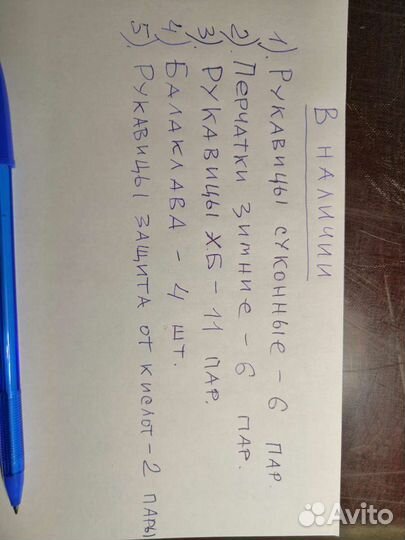 В НАЛИЧИИ
1). РУКАВИЦЫ СУКОННЫЕ - 6 ПАР.
2). ПЕРЧАТКИ ЗИМНИЕ - 6 ПАР.
3) РУКАВИЦЫ Х.Б - 11 ПАР.
4) БАЛАКЛАВА - 4 ШТ.
5). РУКАВИЦЫ ЗАЩИТА ОТ КИСЛОТ - 2 ПАРЫ
Avito